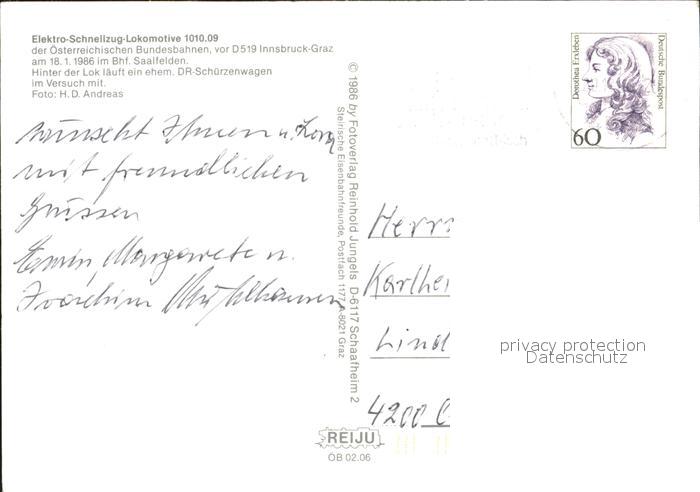 Elektro-Schnellzug-Lokomotive 1010.09
der Österreichischen Bundesbahnen, vor D 519 Innsbruck-Graz
am 18. 1. 1986 im Bhf. Saalfelden.
Hinter der Lok läuft ein ehem. DR-Schürzenwagen
im Versuch mit.
Foto: H. D. Andreas
wünscht Ihnen u.
mit freundlichen
Grüssen
Erwin, Margarete u.
Joachim
© 1986 by Fotoverlag Reinhold Jungels D-6117 Schaafheim 2
Steirische Eisenbahnfreunde, Postfach 1177, A-8021 Graz
REIJU
ÖB 02.06
Dorothea Erxleben
Deutsche Bundespost
60
Herrn
Karlhei
Lind
4200 O
privacy protection
Datenschutz